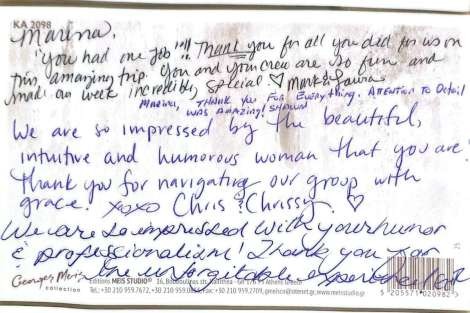 KA 2098
Marina,
"You had one job"!!! Thank you for all you did for us on
this amazing trip. You and your crew are so fun and
made our week incredibly special ♡ Mark & Laura
Marina, Thank you for everything. Attention to Detail
was amazing! Shawn
We are so impressed by the beautiful,
intuitive and humorous woman that you are!
Thank you for navigating our group with
grace. xoxo Chris & Chrissy ♡
We are so impressed with your humor
& professionalism! Thank you for
the unforgitable
Georges Meis
collection
Editions MEIS STUDIO
Athens Greece
Tel.: +30 210 959.7672, +30 210 959.0853, Fax: +30 210 959.2709, www.meisstudio.gr
5 205571 020982